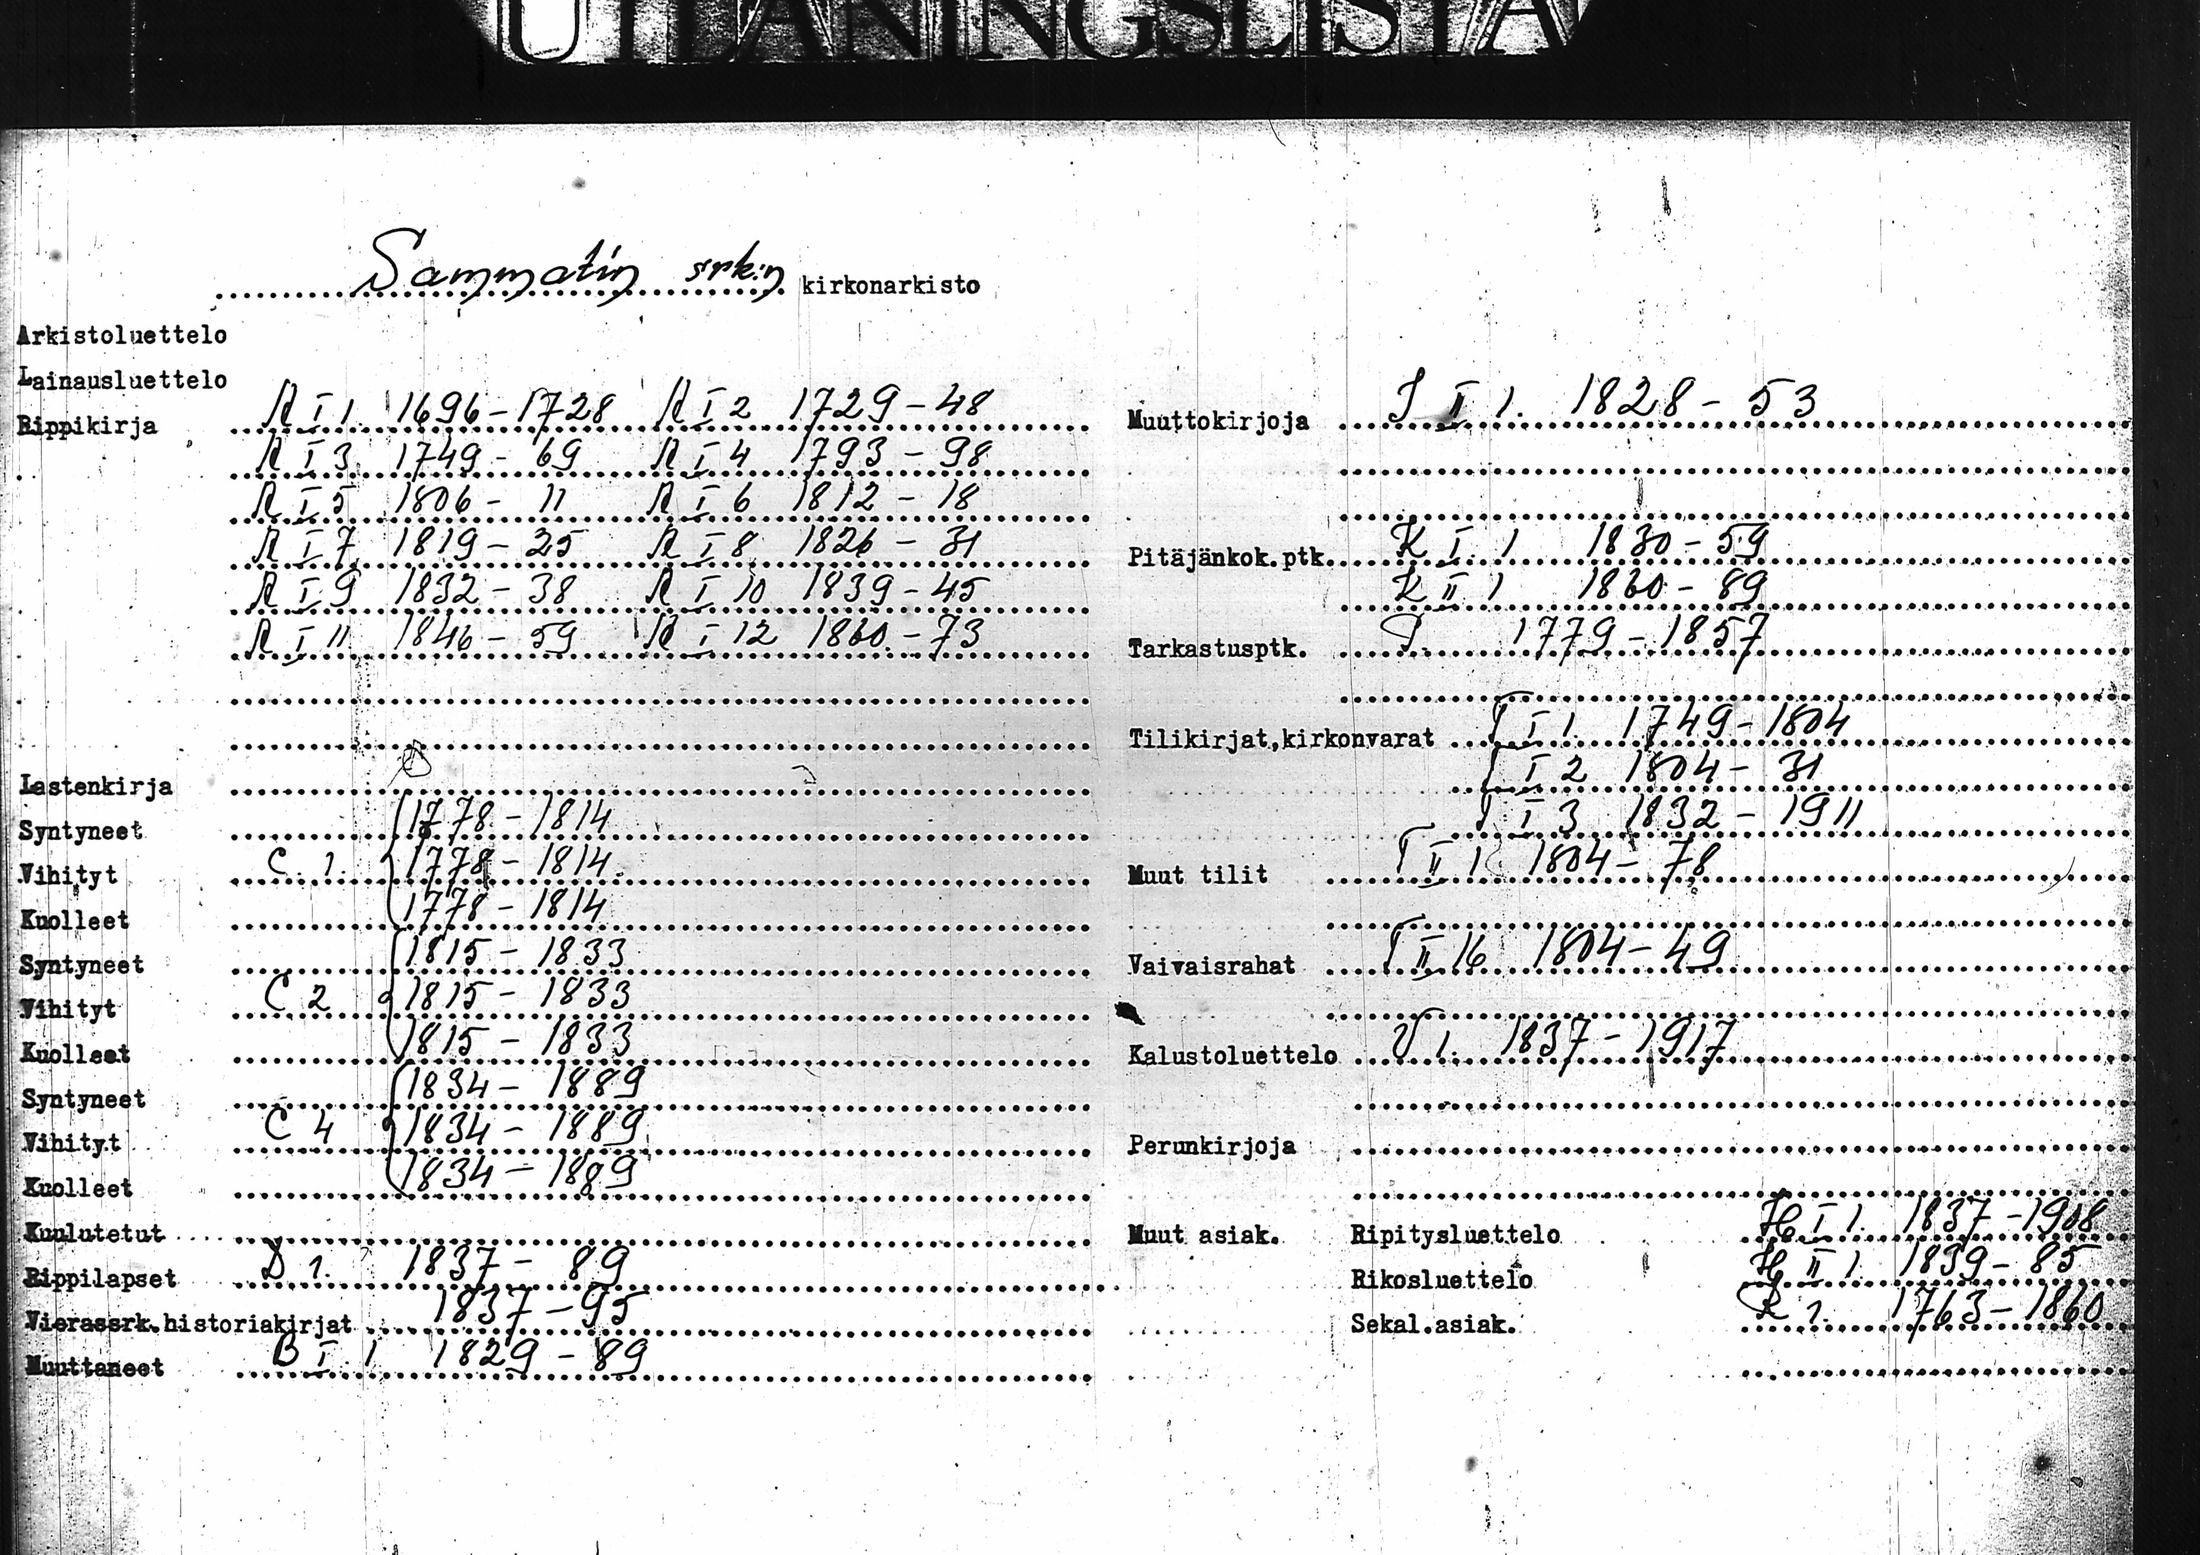 UTLÅNINGSLISTA
Sammatin srk:n kirkonarkisto
Arkistoluettelo
Lainausluettelo
Rippikirja A I 1 1696-1728 A I 2 1729-48
A I 3 1749-69 A I 4 1793-98
A I 5 1806-11 A I 6 1812-18
A I 7 1819-25 A I 8 1826-31
A I 9 1832-38 A I 10 1839-45
A I 11 1846-59 A I 12 1860-73
Lastenkirja
Syntyneet 1778-1814
Vihityt C 1. 1778-1814
Kuolleet 1778-1814
Syntyneet 1815-1833
Vihityt C 2 1815-1833
Kuolleet 1815-1833
Syntyneet 1834-1889
Vihityt C 4 1834-1889
Kuolleet 1834-1889
Kuulutetut
Rippilapset D 1. 1837-89
Vierassrk.historiakirjat 1837-95
Muuttaneet B I 1 1829-89
Muuttokirjoja J II 1. 1828-53
Pitäjänkok.ptk. K I 1 1830-59
K II 1 1860-89
Tarkastusptk. 1779-1857
Tilikirjat,kirkonvarat T I 1. 1749-1804
T I 2 1804-31
T I 3 1832-1911
Muut tilit T II 1 1804-78
Vaivaisrahat T II 16 1804-49
Kalustoluettelo V 1. 1837-1917
Perunkirjoja
Muut asiak. Ripitysluettelo H I 1. 1837-1908
Rikosluettelo H II 1 1839-85
Sekal.asiak. R 1. 1763-1860